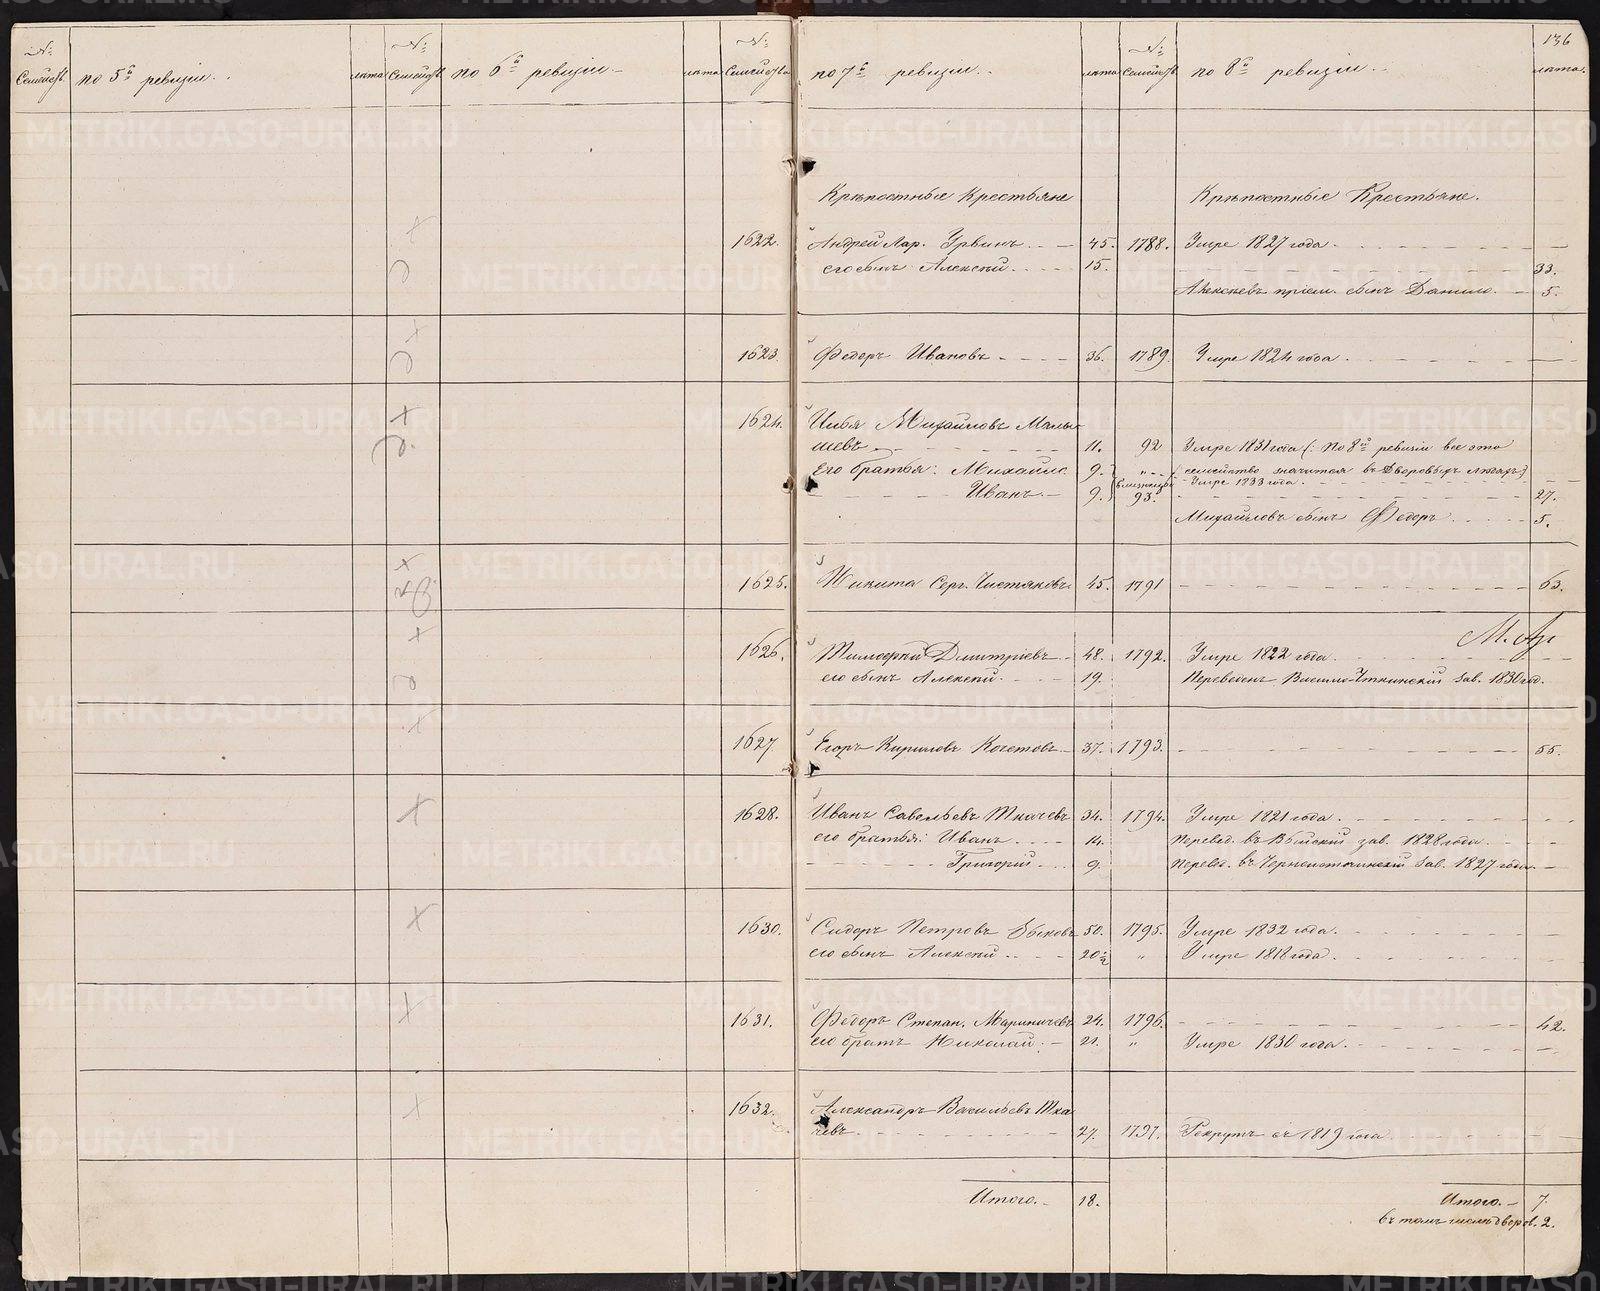 136
№ Семейств. по 5й ревизіи. лѣта № Семейств. по 6й ревизіи. лѣта № Семейства по 7й ревизіи. лѣта № семейств. по 8й ревизіи. лѣта.
Крѣпостные Крестьяне Крѣпостные Крестьяне.
1622. Андрей Лар. Урвинъ 45. 1788. Умре 1827 года.
его сынъ Алексѣй. 15. 33.
Алексѣевъ пріем. сынъ Данило. 5.
1623. Федоръ Ивановъ 36. 1789. Умре 1824 года.
1624. Илья Михайловъ Малы-
шевъ 11. 92 Умре 1831 года (: По 8й ревизіи все это
Его братья: Михайло 9. „ семейство значится въ Дворовыхъ людяхъ)
близнецы Умре 1833 года.
Иванъ. 9. 93. 27.
Михайловъ сынъ Федоръ 5.
1625. Никита Серг. Чистяковъ. 45. 1791 63.
М. Ар
1626. Тимофей Дмитріевъ 48. 1792. Умре 1822 года.
его сынъ Алексѣй. 19. Переведенъ Висимо-Уткинскій зав. 1830 год.
1627. Егоръ Кириловъ Кочетовъ. 37. 1793. 55.
1628. Иванъ Савельевъ Ткачевъ 34. 1794. Умре 1821 года.
его братья: Иванъ 14. Перевед. въ Выйскій зав. 1828 года.
Григорій 9. Перевед. въ Черноисточинскій зав. 1827 года.
1630. Сидоръ Петровъ Быковъ 50. 1795. Умре 1832 года.
его сынъ Алексѣй 20½ „ Умре 1818 года.
1631. Федоръ Степан. Мариничевъ 24. 1796. 42.
его братъ Николай. 21. „ Умре 1830 года.
1632. Александръ Васильевъ Тка
чевъ 27. 1797. Рекрутъ съ 1819 года
Итого. 18. Итого. 7.
въ томъ числѣ дворов. 2.
METRIKI.GASO-URAL.RU